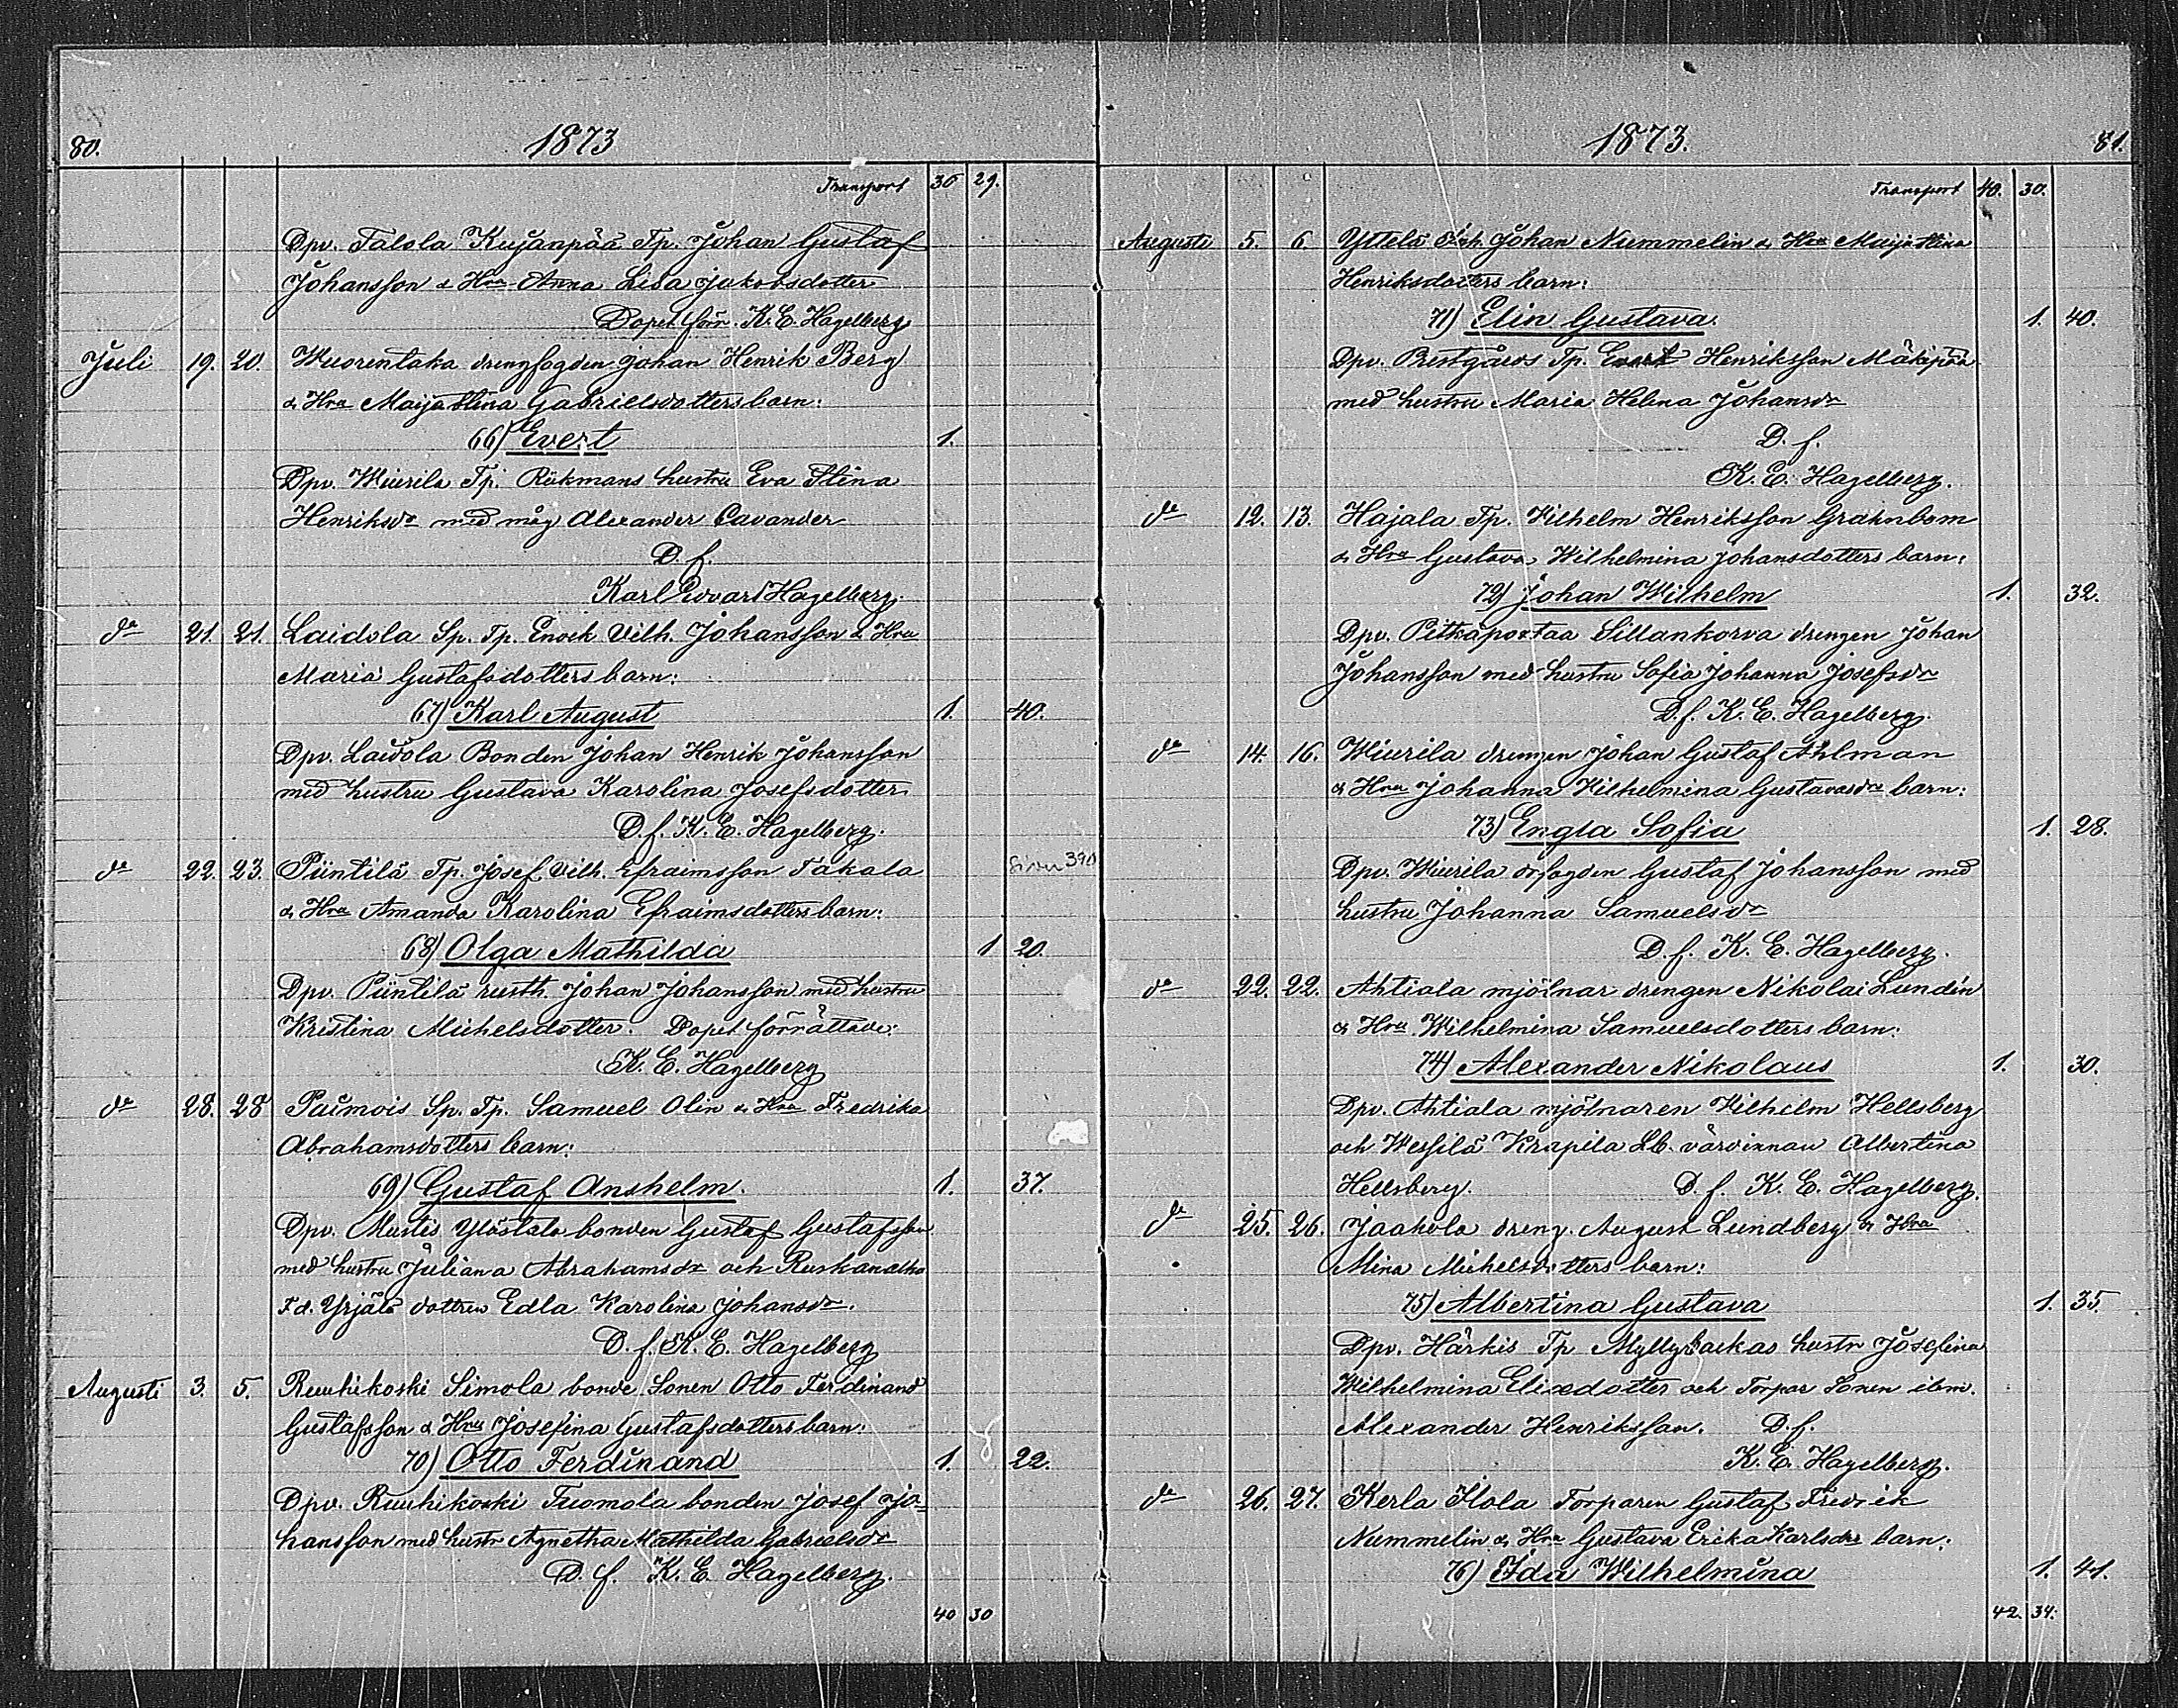 80. 1873
Transport 36 29.
Dpv. Talola Kujanpää Tp. Johan Gustaf
Johansson & Hru Anna Lisa Jakobsdotter
Dopet förr. K. E. Hagelberg
Juli 19. 20. Wuorentaka drengfogden Johan Henrik Berg
& Hru Maija Stina Gabrielsdotters barn:
66) Evert 1.
Dpv. Wiurila Tp. Rökmans hustru Eva Stina
Henriksdr med måg Alexander Cavander
D. f.
Karl Edvard Hagelberg.
do 21. 21. Laidola Sp. Tp. Enok Vilh. Johansson & Hru
Maria Gustafsdotters barn:
67) Karl August 1. 40.
Dpv. Laidola Bonden Johan Henrik Johansson
med hustru Gustava Karolina Josefsdotter
D. f. K. E. Hagelberg.
do 22. 23. Piintilä Tp. Josef Vilh. Efraimsson Takala 390
& Hru Amanda Karolina Efraimsdotters barn:
68) Olga Mathilda 1 20.
Dpv. Piintilä rusth. Johan Johansson med hustru
Kristina Michelsdotter. Dopet förrättade:
K. E. Hagelberg
do 28. 28 Paimois Sp. Tp. Samuel Olin & Hru Fredrika
Abrahamsdotters barn:
69) Gustaf Anshelm. 1. 37.
Dpv. Mustis Ylöstalo bonden Gustaf Gustafsson
med hustru Juliana Abrahamsdr och Ruskanatka
Fd. Yrjälä dottren Edla Karolina Johansdr.
D. f. K. E. Hagelberg
Augusti 3. 5. Ruuhikoski Simola bonde Sonen Otto Ferdinand
Gustafsson & Hru Josefina Gustafsdotters barn:
70) Otto Ferdinand 1. 22.
Dpv. Ruuhikoski Tuomola bonden Josef Jo-
hansson med hustr Agnetha Mathilda Gabrielsdr
D. f. K. E. Hagelberg.
40 30
1873. 81.
Transport 40. 30.
Augusti 5. 6 Yttelä Inh. Johan Nummelin & Hru Maija Stina
Henriksdotters barn:
71) Elin Gustava. 1. 40.
Dpv. Prestgårds Tp. Henriksson Mäkipää
med hustru Maria Helena Johansdr
D. f.
K. E. Hagelberg.
do 12. 13. Hajala Tp. Vilhelm Henriksson Grahnbom
& Hru Gustava Wilhelmina Johansdotters barn:
72) Johan Wilhelm 1. 32.
Dpv. Pitkäportaa Sillankorva drengen Johan
Johansson med hustru Sofia Johanna Josefsdr
D. f. K. E. Hagelberg.
do 14. 16. Wiurila drengen Johan Gustaf Ahlman
& Hru Johanna Vilhelmina Gustavasdrs barn:
73) Engla Sofia 1. 28.
Dpv. Wiurila drfogden Gustaf Johansson med
hustru Johanna Samuelsdr
D. f. K. E. Hagelberg.
do 22. 22. Ahtiala mjölnar drengen Nikolai Lundén
& Hru Wilhelmina Samuelsdotters barn:
74) Alexander Nikolaus 1. 30.
Dpv. Ahtiala mjölnaren Vilhelm Hellsberg
och Wessilä Krapila Lb. värdinnan Albertina
Hellsberg. D. f. K. E. Hagelberg.
do 25. 26. Jaakola dreng. August Lundberg & Hru
Mina Michelsdotters barn:
75) Albertina Gustava 1. 35.
Dpv. Härkis Tp Myllybackas hustr Josefina
Wilhelmina Eliædotter och Torpar Sonen ibm.
Alexander Henriksson. D. f.
K. E. Hagelberg.
do 26. 27. Kerla Ilola Torparen Gustaf Fredrik
Nummelin & Hru Gustava Erika Karlsdrs barn:
76) Ida Wilhelmina 1. 41.
42. 34.